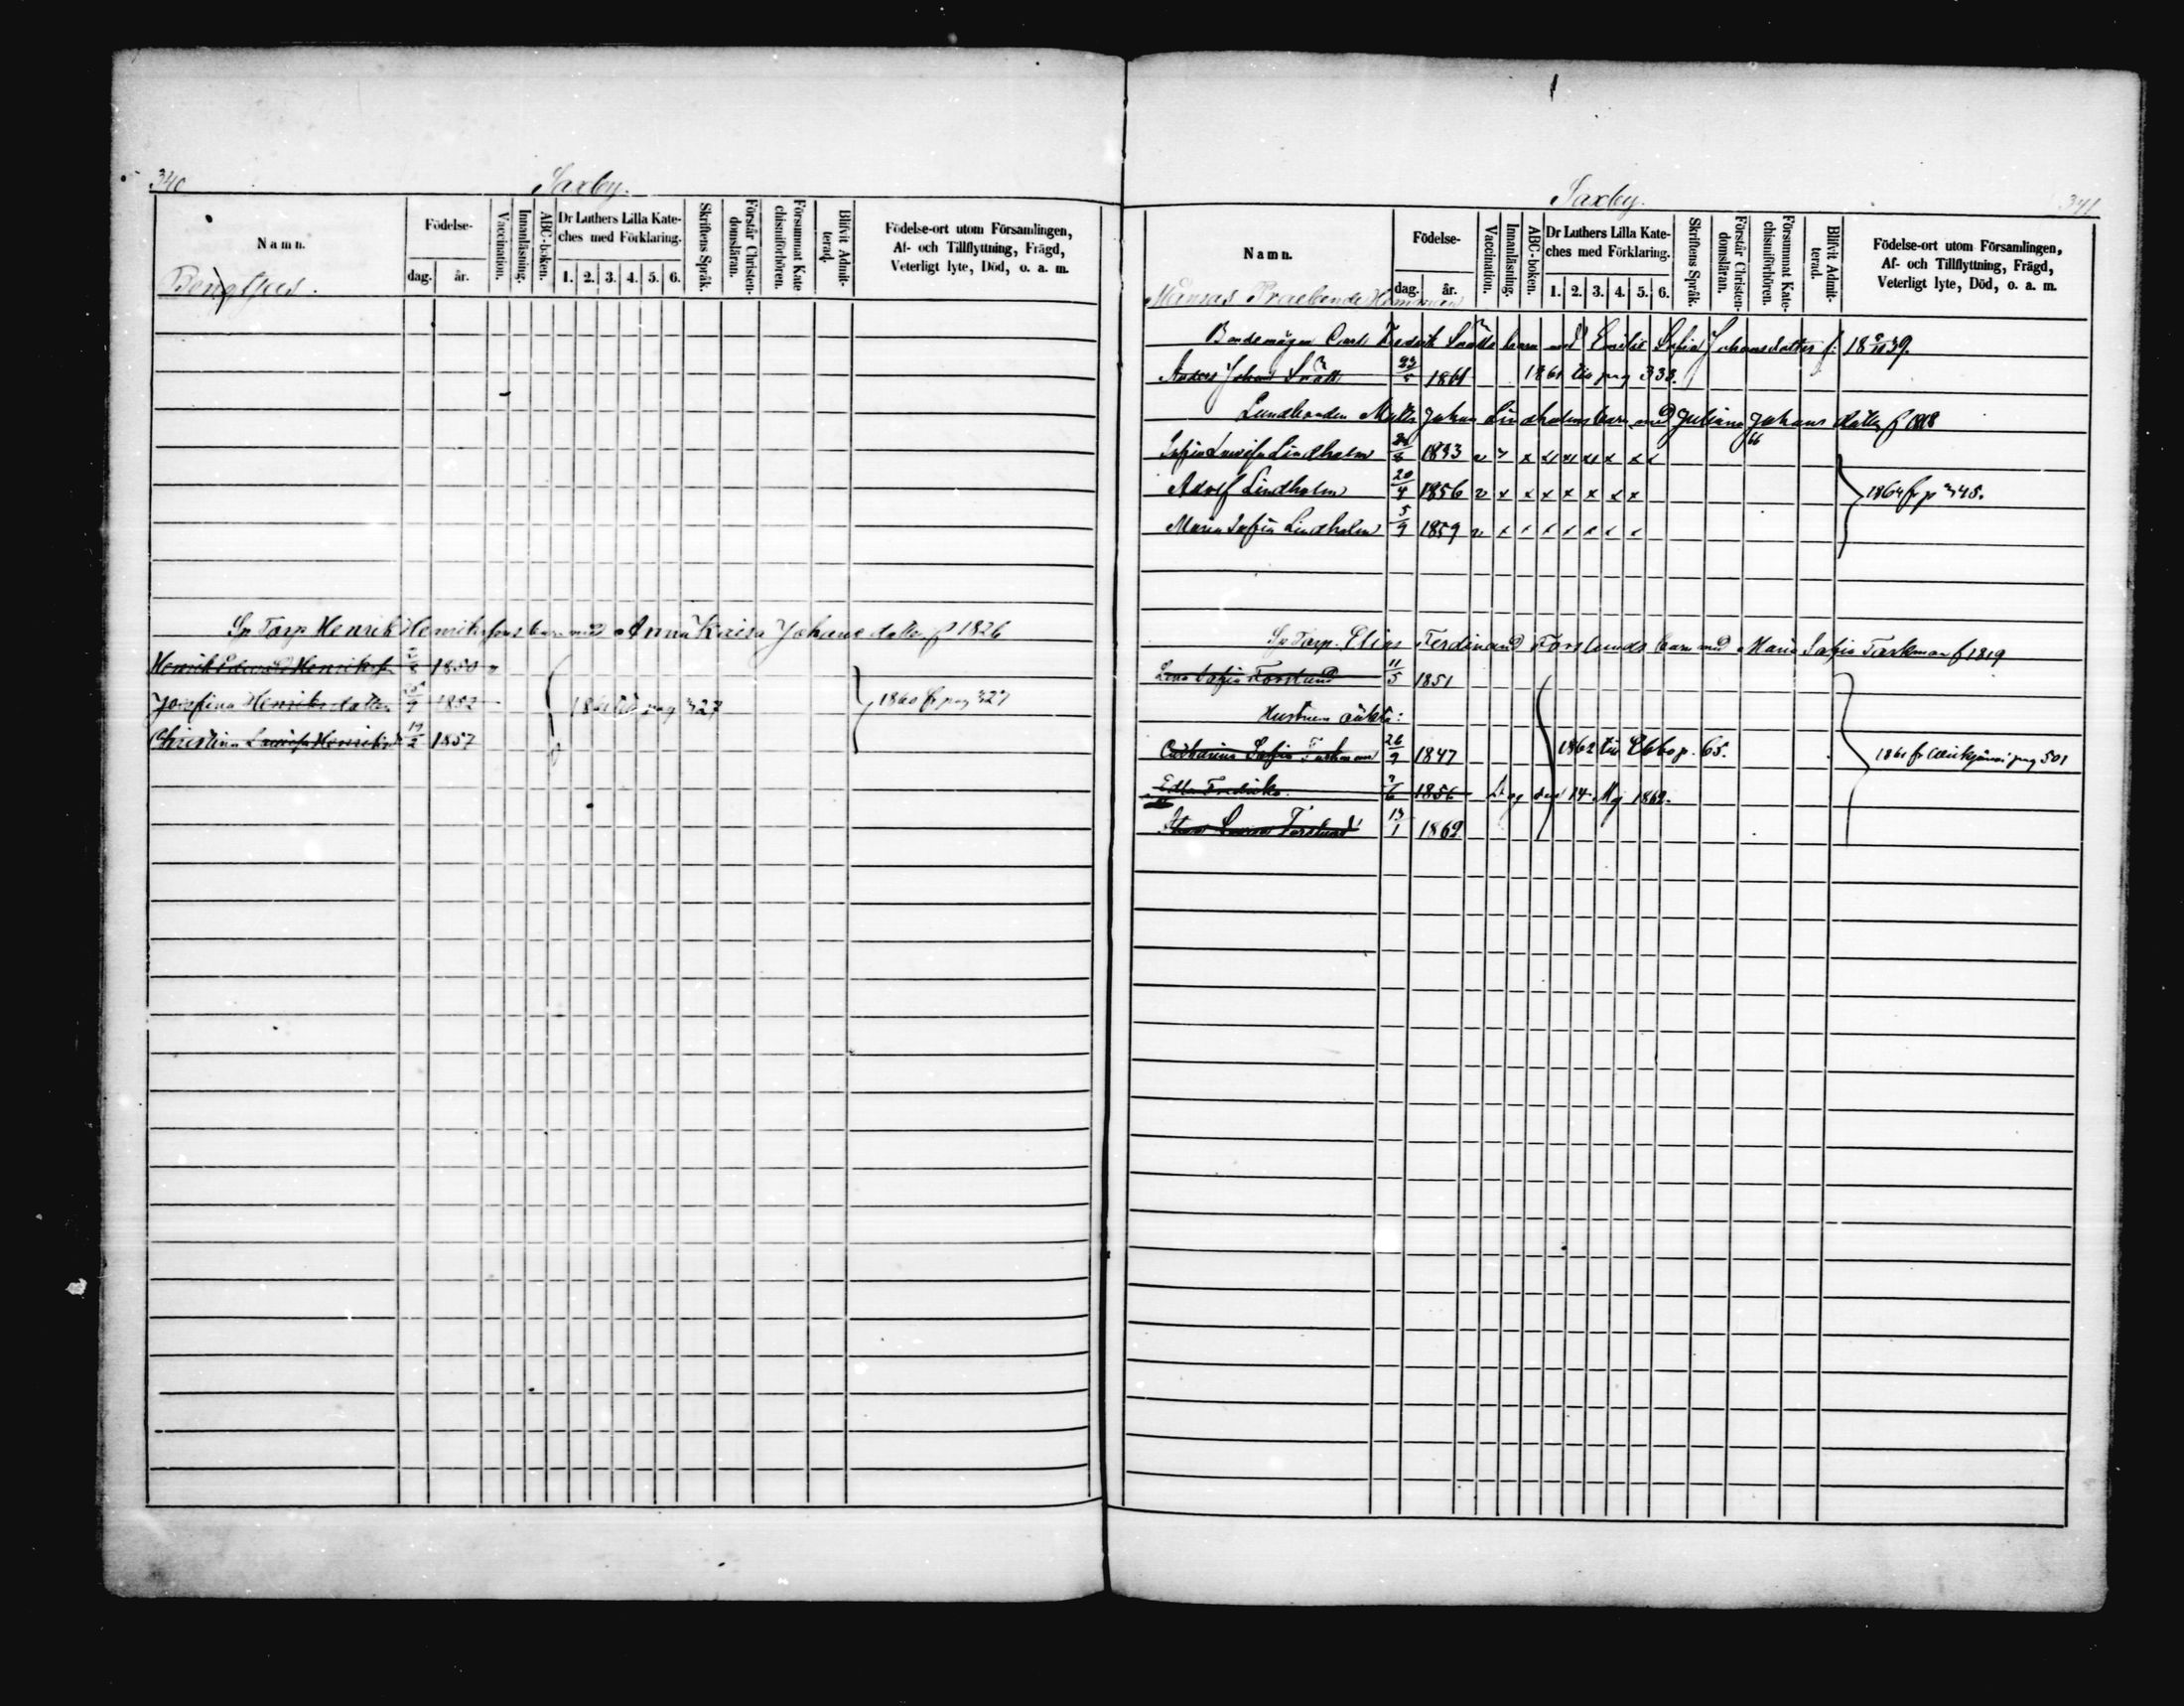 340
Saxby.
Namn.
Födelse-
dag.
år.
Vaccination.
Innanläsning.
ABC-boken.
Dr Luthers Lilla Kate-
ches med Förklaring.
1. 2. 3. 4. 5. 6.
Skriftens Språk.
Förstår Christen-
domsläran.
Försummat Kate
chismiförhören.
Blifvit Admit-
terad.
Födelse-ort utom Församlingen,
Af- och Tillflyttning, Frägd,
Veterligt lyte, Död, o. a. m.
Sp Torp Henrik Henrikssons barn med Anna Kaisa Johans dotter f 1826
Henrik Edvard Henriksson 1850 v
Josefina Henriksdotter 1852 pag 327 1860 fr pag 327
Christina Lovisa 19/2 1857
Saxby.
341
Namn.
Födelse-
dag.
år.
Vaccination.
Innanläsning.
ABC-boken.
Dr Luthers Lilla Kate-
ches med Förklaring.
1. 2. 3. 4. 5. 6.
Skriftens Språk.
Förstår Christen-
domsläran.
Försummat Kate-
chismiförhören.
Blifvit Admit-
terad.
Födelse-ort utom Församlingen,
Af- och Tillflyttning, Frägd,
Veterligt lyte, Död, o. a. m.
Månsas Præbende Hemman
Bondemågen Carl Fredrik barn med Emilie Sofia Johansdotter f: 39.
Anders Johan 1861 1861 till pag 338.
Landbonden Matts Johan Lindholms barn med Juliana Johans dotter f
66
Sofia Lovisa Lindholm 1853 v x x x x x x x
Adolf Lindholm 20/4 1856 v x x x x x x x 1864 fr p 345.
Maria Sofia Lindholm 5/9 1859 v x
Sp Torp. Elias Ferdinand Forslunds barn med Maria Sofia Taskman f 1819
Lena Sofia Forslund 11/5 1851
Hustruns oäkta:
Catharina Sofia Taskman 26/9 1847 1862 till Ebbo p. 65. 1861 fr pag 501
Edla Fredrika. 1856 den 14 Maj 1862.
Lovisa Forslund 13/1 1862